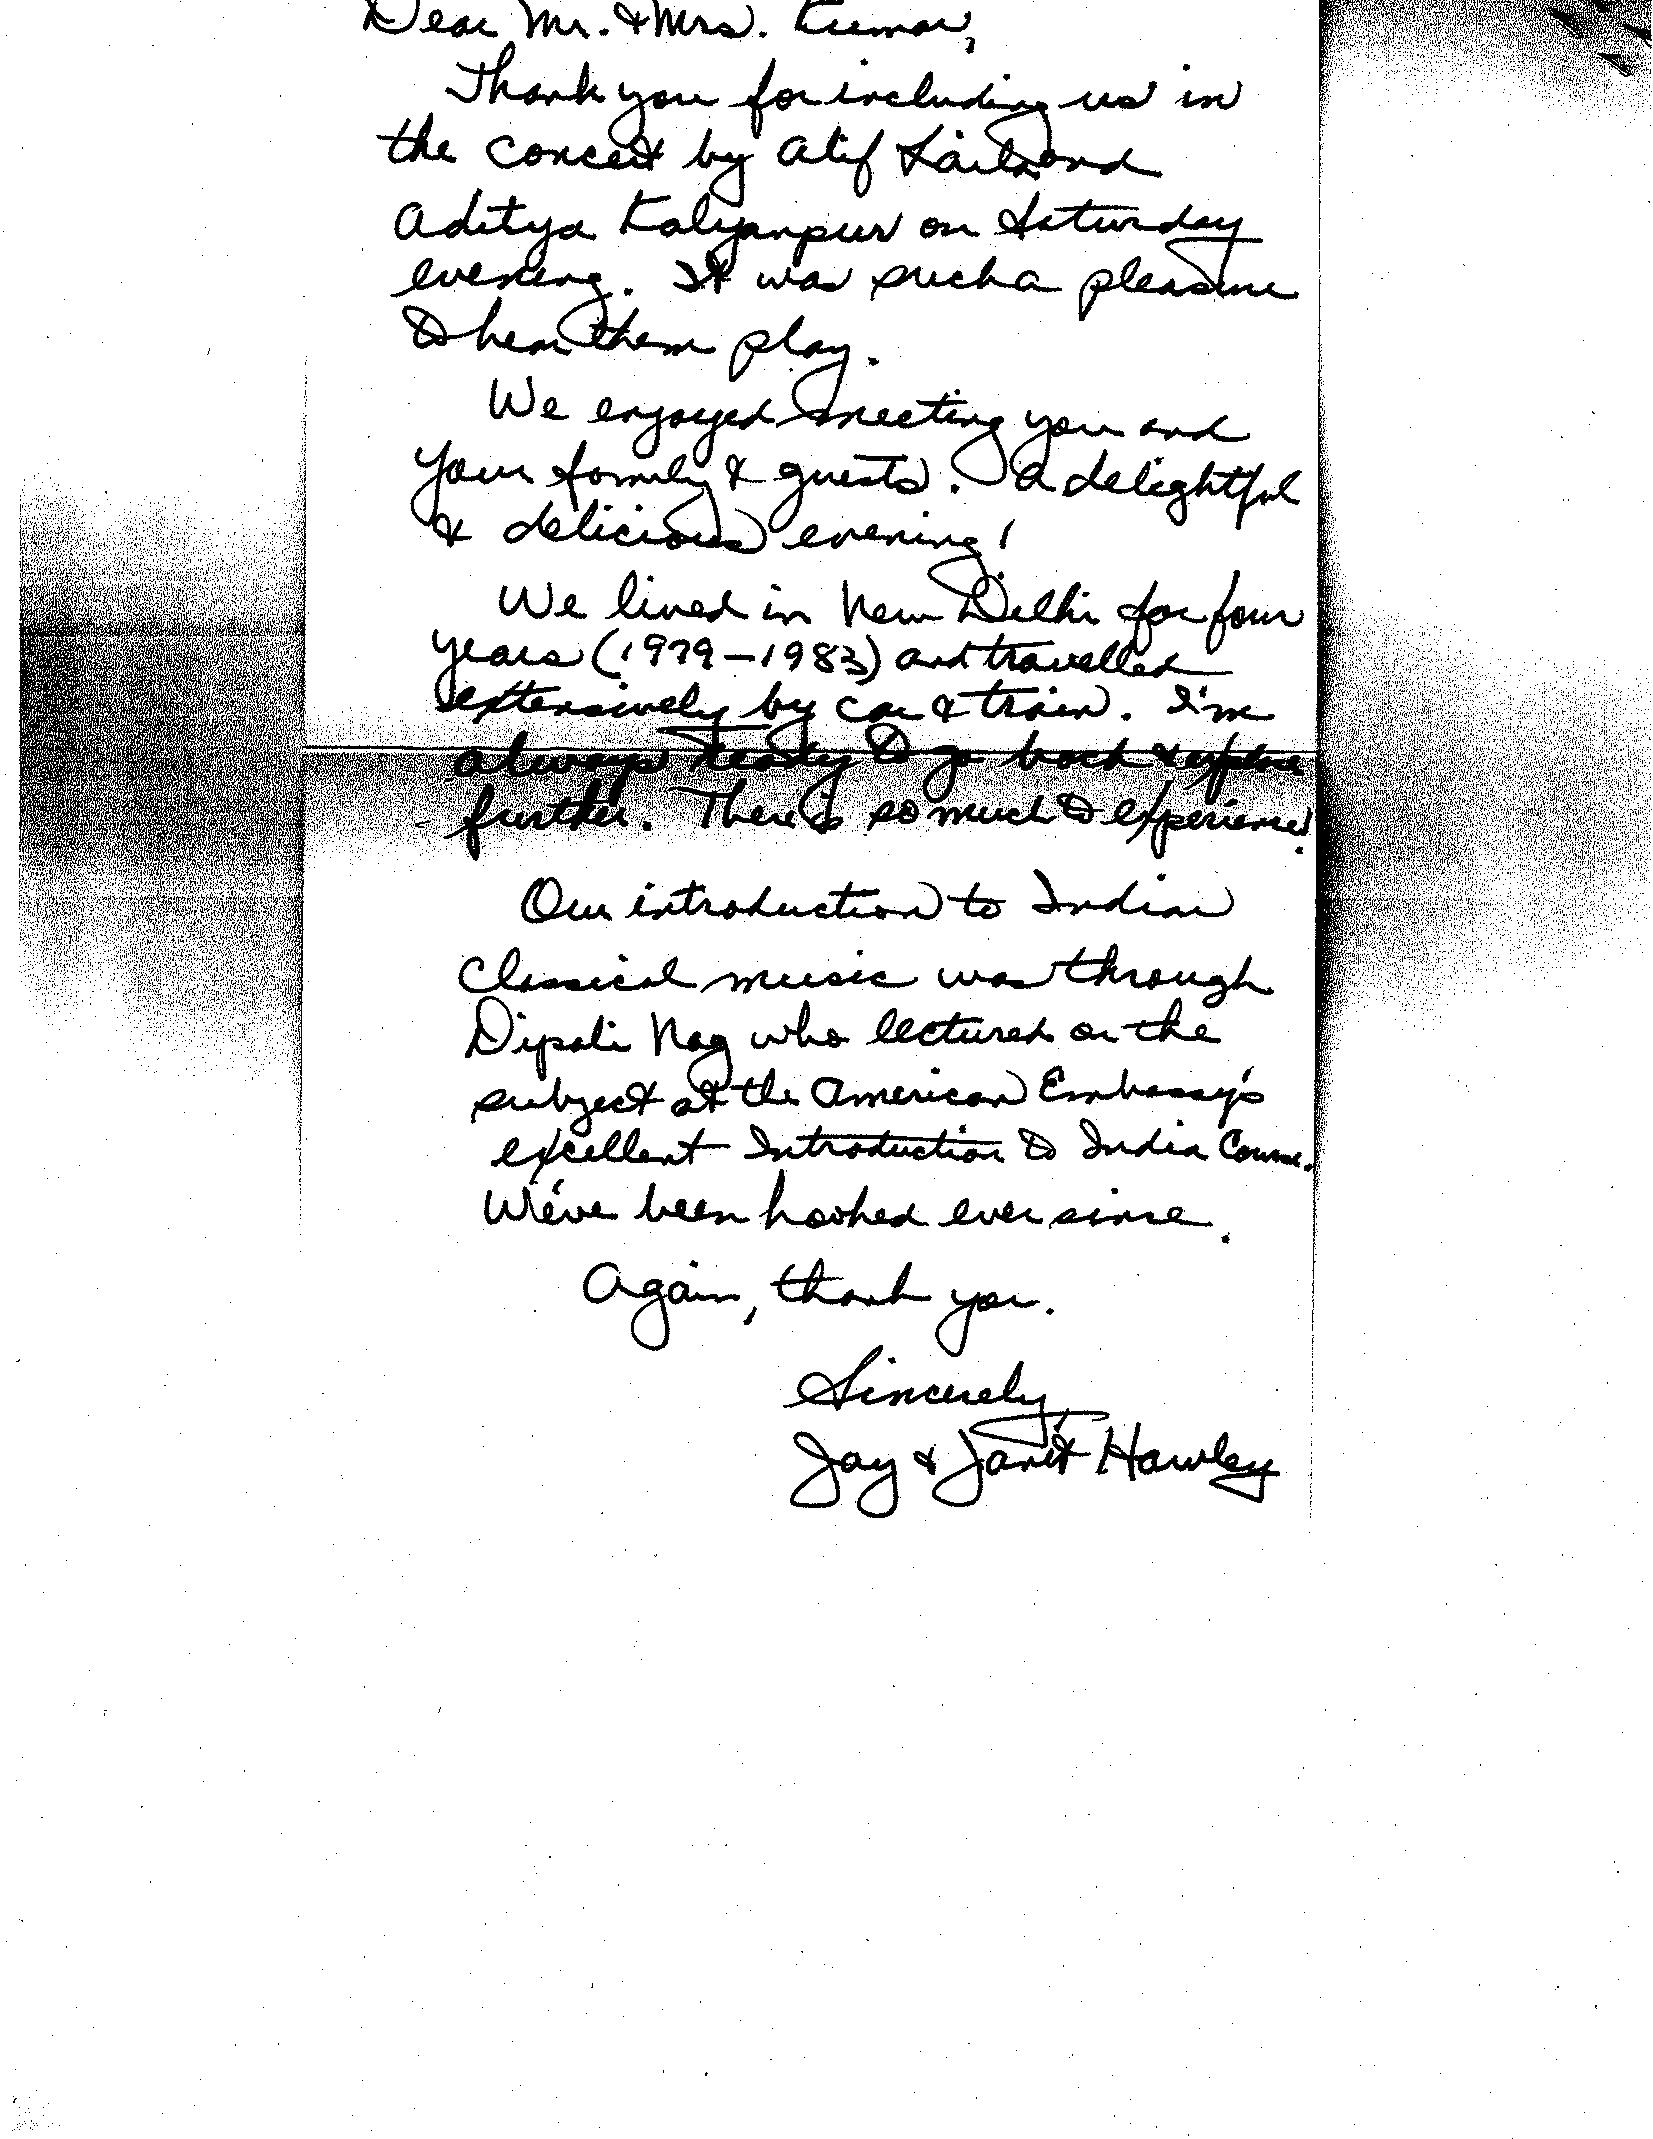 Dear Mr. & Mrs. Kumar,
Thank you for including us in
the concert by Atif Laila and
Aditya Kalyanpur on Saturday
evening. It was such a pleasure
to hear them play.
We enjoyed meeting you and
your family & guests. A delightful
& delicious evening!
We lived in New Delhi for four
years (1979-1983) and travelled
extensively by car & train. I'm
always ready to go back & explore
further. There is so much to experience.
Our introduction to Indian
Classical music was through
Dipali Nag who lectured on the
subject at the American Embassy's
excellent Introduction to India Course.
We've been hooked ever since.
Again, thank you.
Sincerely,
Jay & Janet Hawley